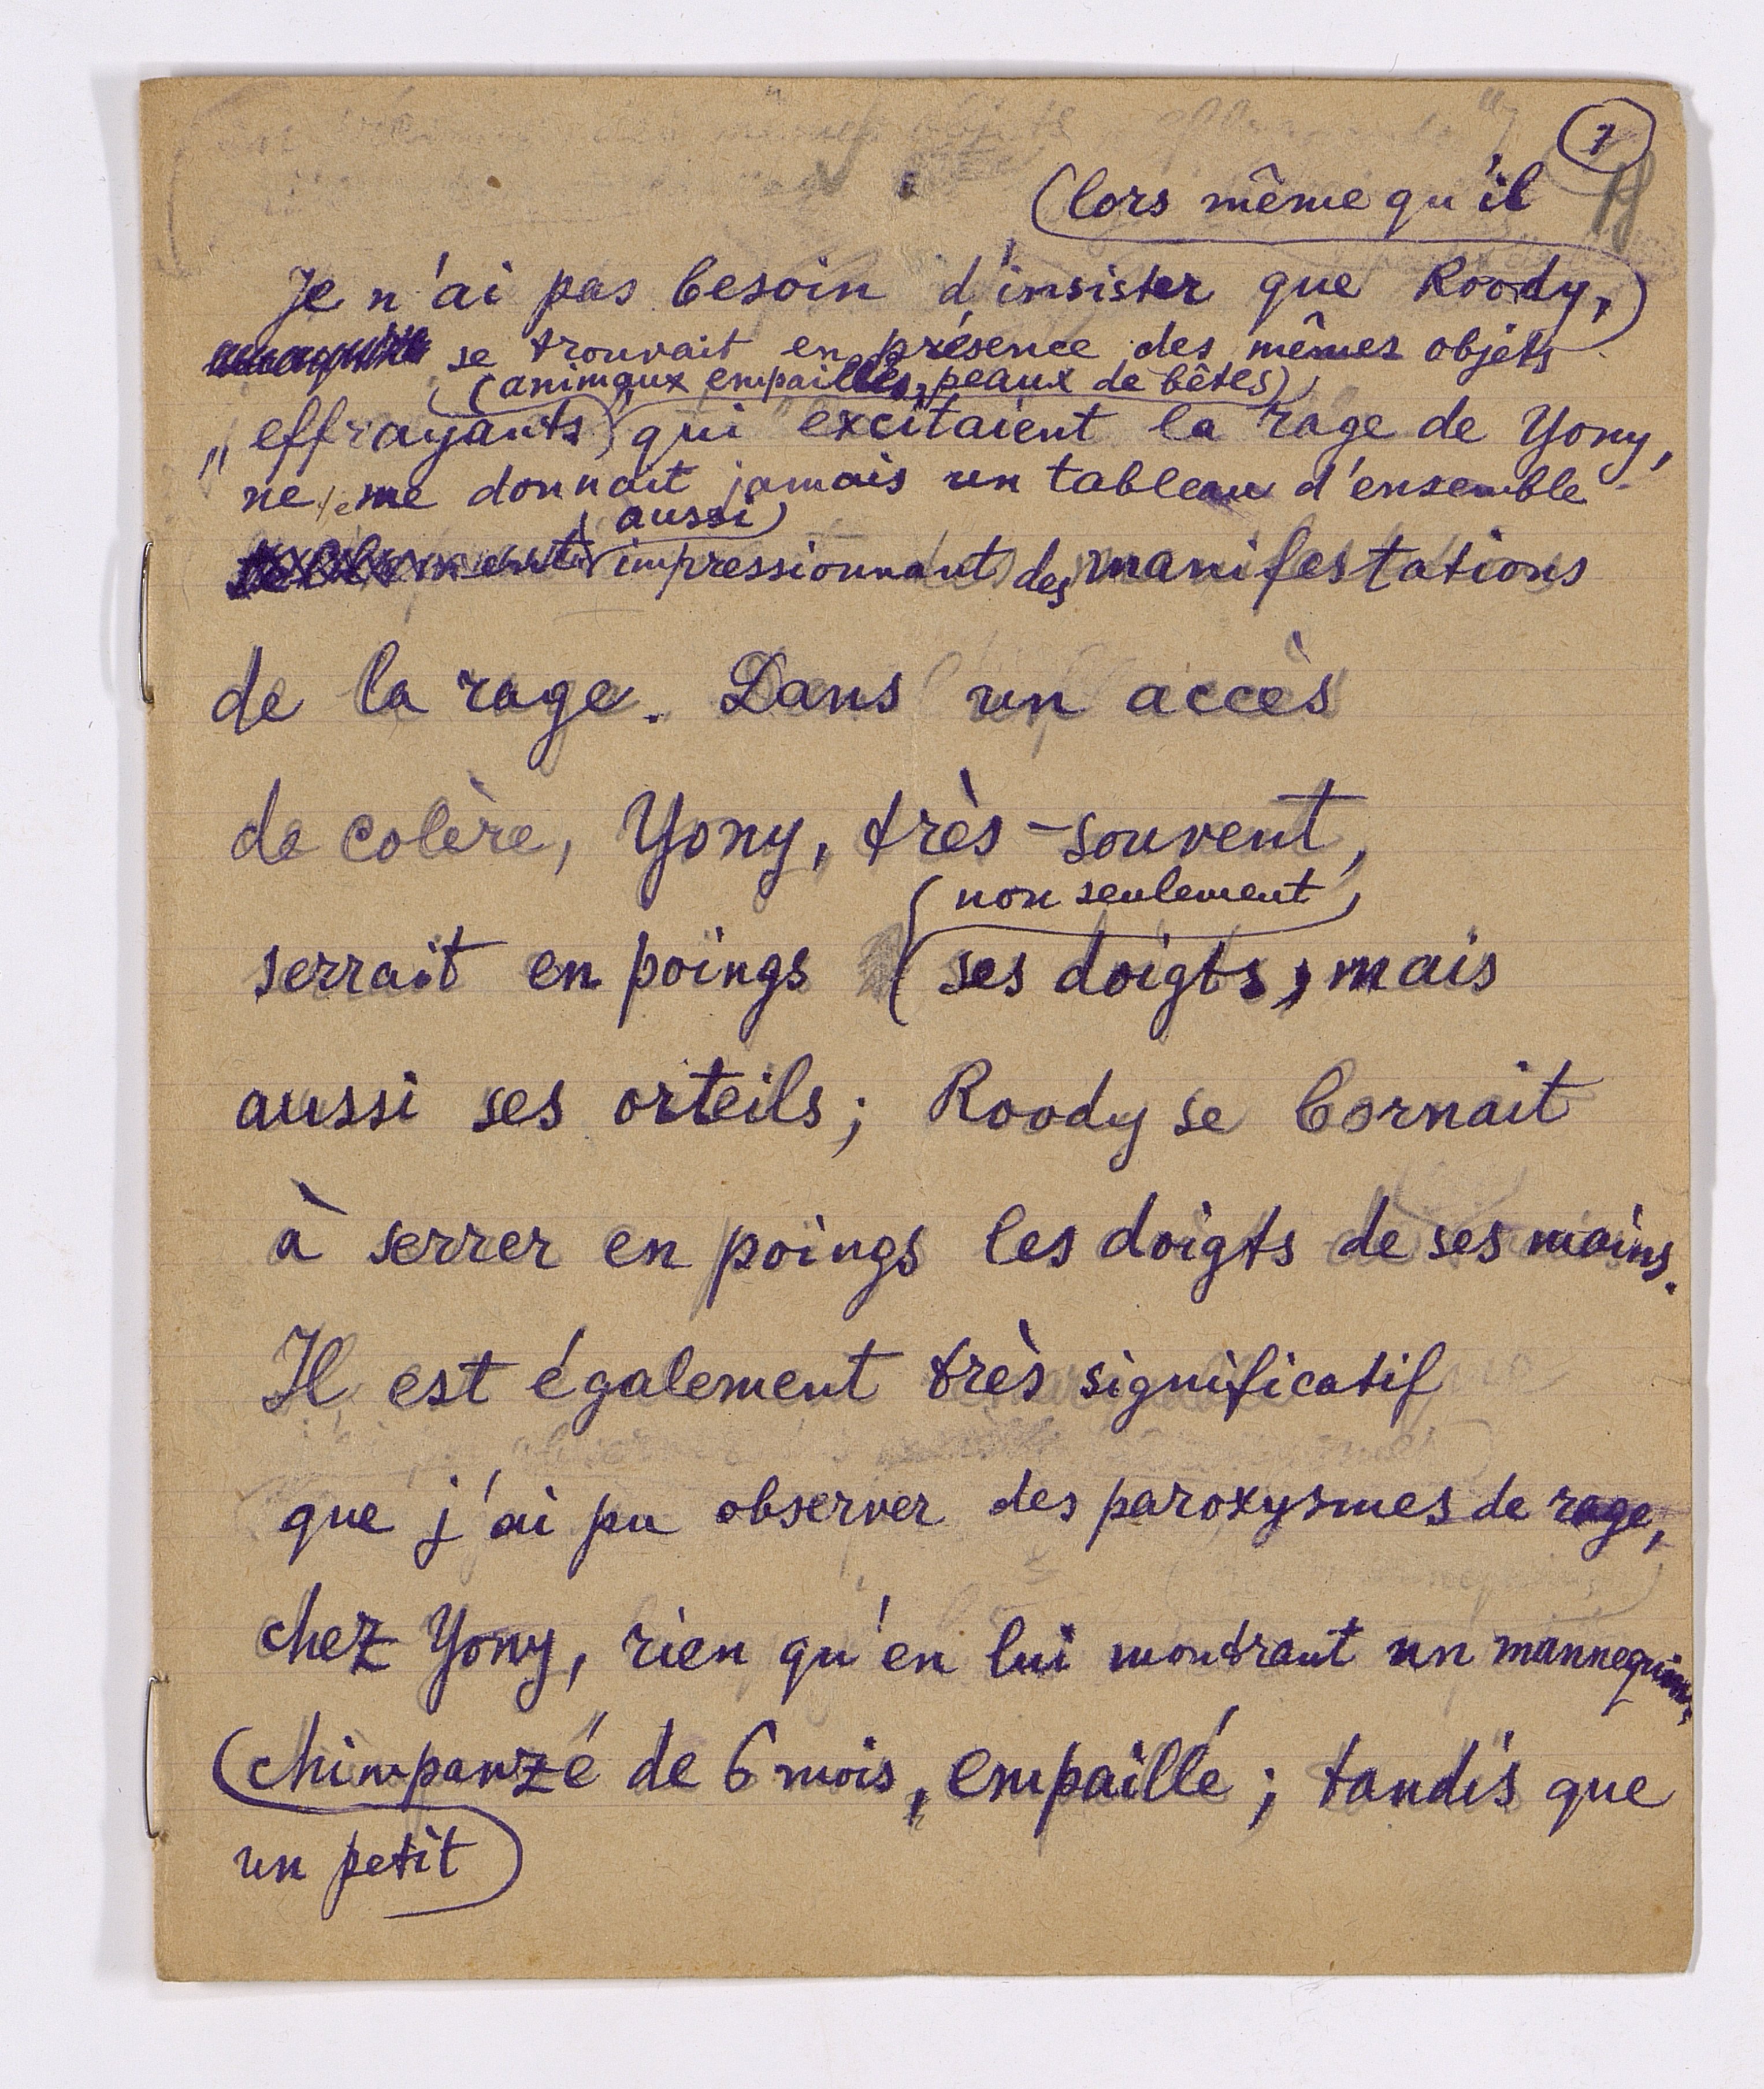 7
18
(lors même qu'il
Je n'ai pas besoin d'insister que Roody,
se trouvait en présence des mêmes objets
(animaux empaillés, peaux de bêtes)
„effrayants" qui excitaient la rage de Yony,
ne me donnait jamais un tableau d'ensemble
(aussi)
impressionnant des manifestations
de la rage. Dans un accès
de colère, Yony, très-souvent,
(non seulement)
serrait en poings ses doigts, mais
aussi ses orteils; Roody se bornait
à serrer en poings les doigts de ses mains.
Il est également très significatif
que j'ai pu observer des paroxysmes de rage,
chez Yony, rien qu'en lui montrant un mannequin,
chimpanzé de 6 mois, empaillé; tandis que
un petit